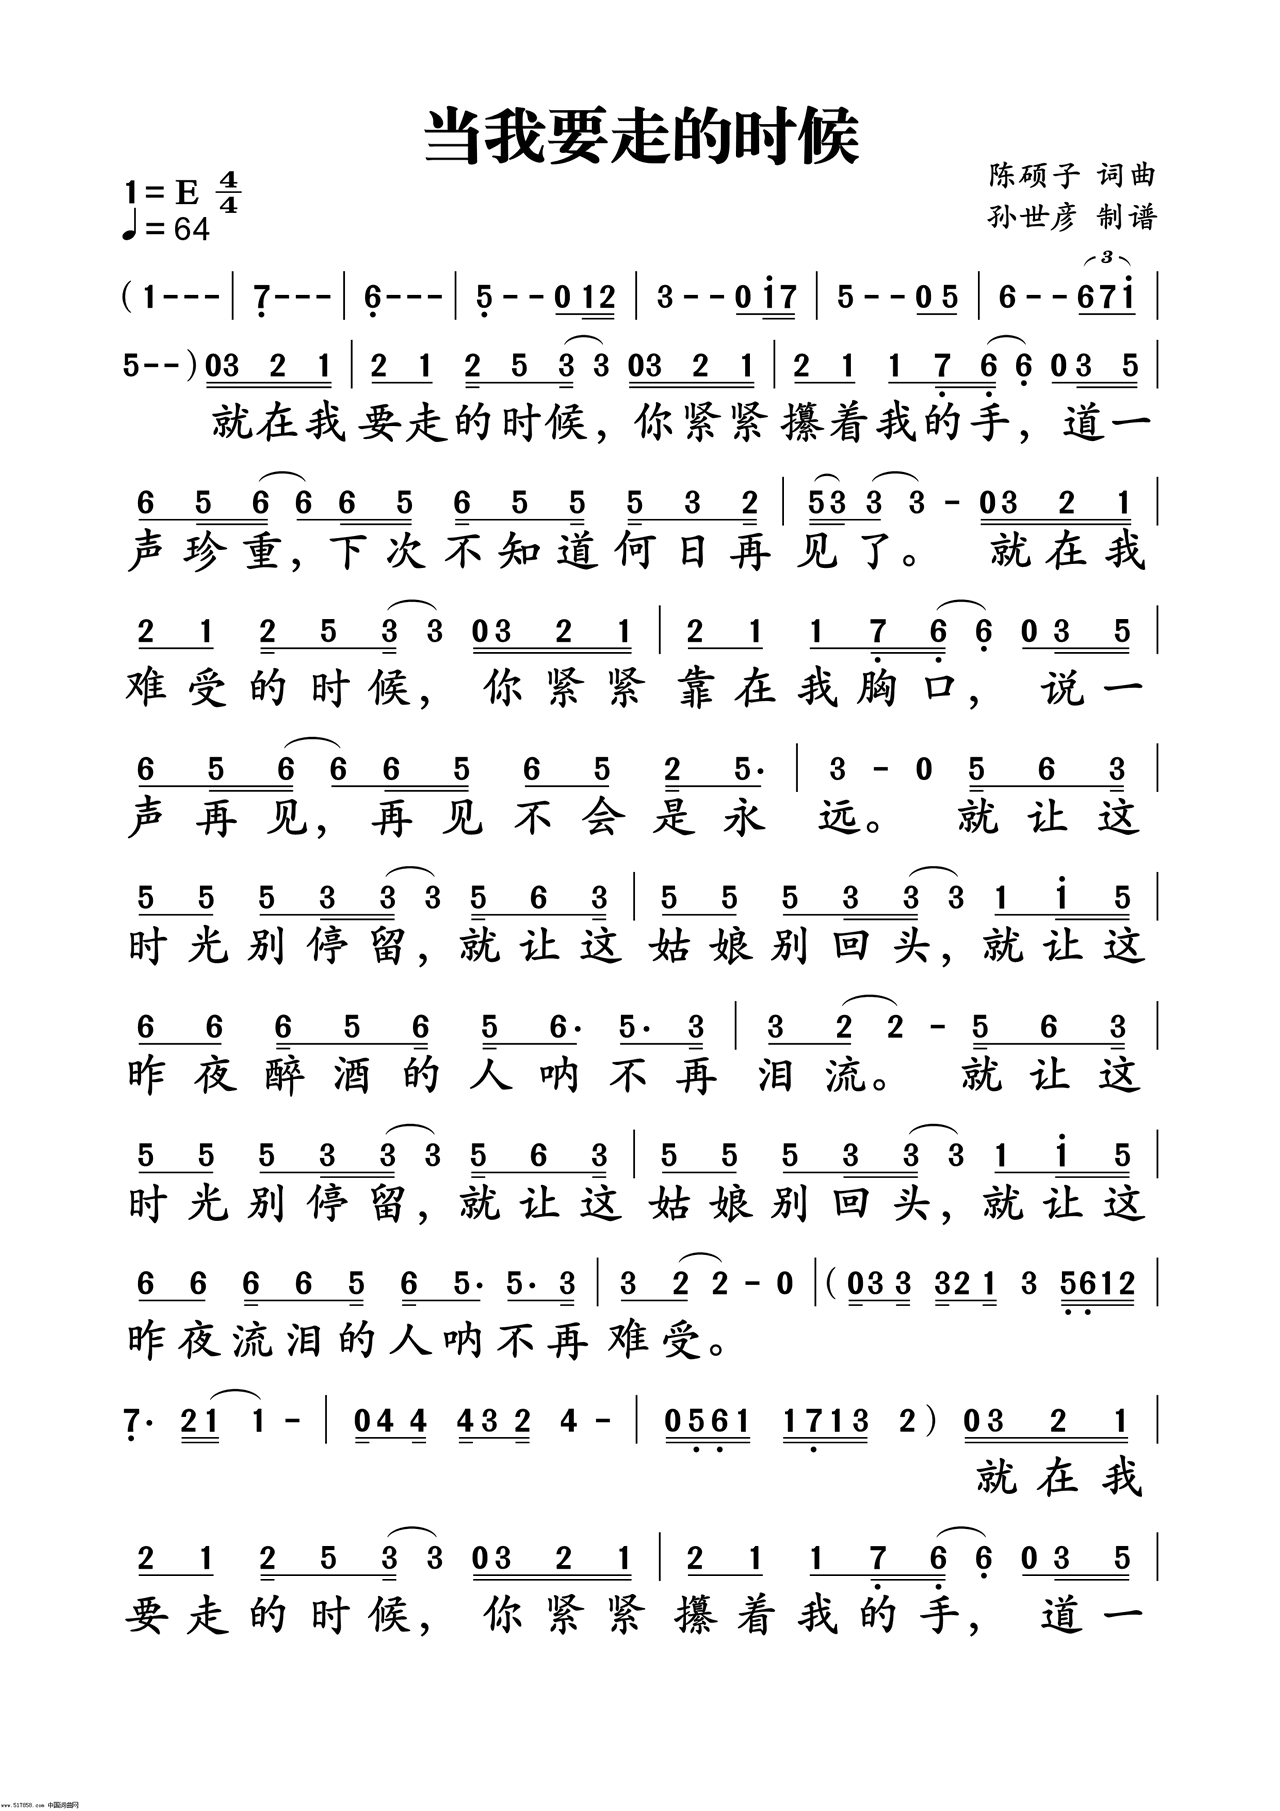 当我要走的时候
1=E 4/4
陈硕子 词曲
♩=64
孙世彦 制谱
3
(1---|7---|6---|5--0 12|3--0 i7|5--0 5|6--67i|
5--)03 2 1|2 1 2 5 3 3 03 2 1|2 1 1 7 6 6 03 5|
就在我要走的时候，你紧紧攥着我的手，道一
6 5 6 6 6 5 6 5 5 5 3 2|53 3 3 - 03 2 1|
声珍重，下次不知道何日再见了。就在我
2 1 2 5 3 3 03 2 1|2 1 1 7 6 6 03 5|
难受的时候，你紧紧靠在我胸口，说一
6 5 6 6 6 5 6 5 2 5.|3 - 0 5 6 3|
声再见，再见不会是永远。就让这
5 5 5 3 3 3 5 6 3|5 5 5 3 3 3 1 i 5|
时光别停留，就让这姑娘别回头，就让这
6 6 6 5 6 5 6. 5. 3|3 2 2 - 5 6 3|
昨夜醉酒的人呐不再泪流。就让这
5 5 5 3 3 3 5 6 3|5 5 5 3 3 3 1 i 5|
时光别停留，就让这姑娘别回头，就让这
6 6 6 6 5 6 5. 5. 3|3 2 2 - 0|(03 3 321 3 5612|
昨夜流泪的人呐不再难受。
7. 21 1 -|04 4 432 4 -|0561 1713 2) 03 2 1|
就在我
2 1 2 5 3 3 03 2 1|2 1 1 7 6 6 03 5|
要走的时候，你紧紧攥着我的手，道一
www.517858.com 中国词曲网